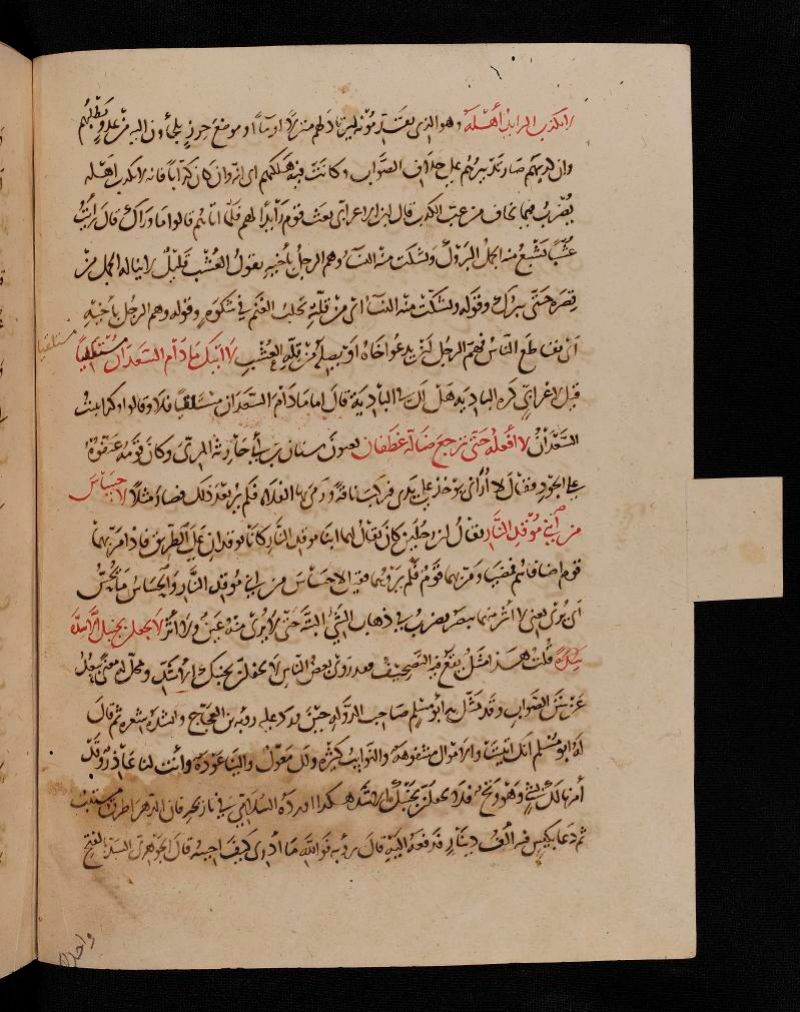 لا يكذب الرائد أهله وهو الذي يقدمونه ليرتاد لهم منزلا أو ماء أو موضع حرز يلجأون إليه من عدو يطلبهم
وان كذبهم صار تدبيرهم على خلاف الصواب وكانت فيه هلكتهم اي انه وان كان كذابا فانه لا يكذب اهله
يضرب فيما يخاف من غب الكذب قال ابن الاعرابي بعث قوم رائدا لهم فلما اتاهم قالوا ما وراك قال رأيت
عشبا تشبع منه الجمل البروك وتشكت منه النساء وهم الرجل بأخيه يقول العشب قليل لا يناله الجمل من
قصره حتى يبرك وقوله وتشكت منه النساء اي من قلته تحلب الغنم في شكوة وقوله وهم الرجل بأخيه
اي تقاطع الناس فهم الرجل ان يدعوا اخاه او يصله من قلة العشب لا آتيك ما دام السعدان مستلقيا
مستلقيا
قيل لاعرابي كره البادية هل لك في البادية قال اما ما دام السعدان مستلقيا فلا وقالوا وكذا ينبت
السعدان لا افعله حتى ترجع ضالة غطفان يعنون سنان بن ابي حارثة المري وكان قومه عنفوه
على الجود فقال لا أراني يؤخذ على يدي فركب ناقة ورمى بها الفلاة فلم ير بعد ذلك فصار مثلا لا حساس
من ابني موقد النار يقال ان رجلين كان يقال لهما ابنا موقد النار كانا يوقدان على الطريق فاذا مر بهما
قوم اضافاهم فمضيا ومر بهما قوم فلم يروهما فقيل لا حساس من ابني موقد النار والحساس ما يحس
اي يرى يعني لا اثر منهما يبصر يضرب في ذهاب الشي البتة حتى لا يرى منه عين ولا اثر لا يجعلن بجنبك الاسدة
قلت هذا مثل يقع فيه التصحيف فقد روى بعض الناس لا يجعلن بجنبك الاسدة ومحل له معنى يبعد
عن سنن الصواب وقد تمثل به ابو مسلم صاحب الدولة حين ورد عليه روبة بن العجاج وانشده شعره ثم قال
له ابو مسلم انك اتيتنا والاموال مشفوهة والنوايب كثيرة ولك معول والينا عودة وأنت لنا عاذر وقد
أمرنا لك بشي وهو وتح فلا يجعلن بجنبك الاسدة هكذا اورده السلامي في تاريخه فان الدهر اطرق مستتب
ثم دعا بكيس فيه الف دينار فدفعه اليه قال روبة فوالله ما أدري كيف اجيبه قال الجوهري السد بالفتح
واحد